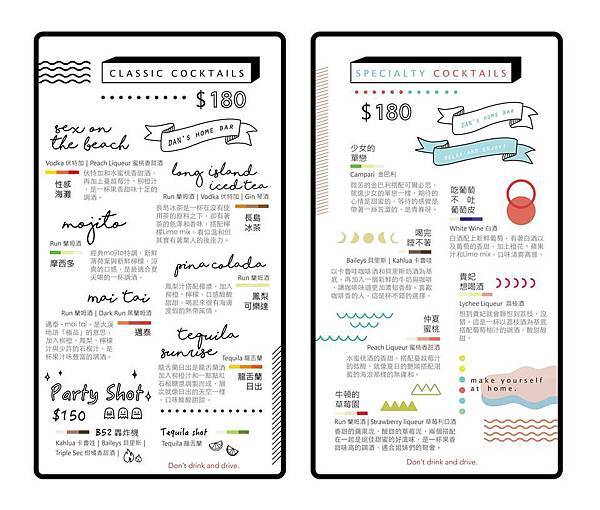 CLASSIC COCKTAILS
$180
DAN'S HOME BAR
sex on
the beach
Vodka 伏特加 | Peach Liqueur 蜜桃香甜酒
性感
海灘
伏特加和水蜜桃香甜酒，
再加上蔓越莓汁、柳橙汁
，是一杯果香甜味十足的
調酒。
long island
iced tea
Run 蘭姆酒 | Vodka 伏特加 | Gin 琴酒
長島冰茶是一杯在沒有使
用茶的原料之下，卻有著
茶的色澤和香味，搭配檸
檬和Lime mix，看似溫和但
其實有著驚人的後座力。
長島
冰茶
mojito
Run 蘭姆酒
摩西多
經典mojito特調，新鮮
薄荷葉與新鮮檸檬，涼
爽的口感，是最適合夏
天喝的一杯調酒。
pina colada
Run 蘭姆酒
蘭姆酒搭配椰漿，加入
柳橙、檸檬，口感酸酸
甜甜，喝起來很有海邊
度假的熱帶風情。
鳳梨
可樂達
mai tai
Run 蘭姆酒 | Dark Run 黑蘭姆酒
邁泰，moi tai，是大溪
地語「極品」的意思，
加入柳橙、鳳梨、檸檬
汁與少許的石榴汁，是
一杯果汁味豐富的調酒。
邁泰
tequila
sunrise
Tequila 龍舌蘭
龍舌蘭日出是龍舌蘭酒
加入柳橙汁和一點點紅
石榴糖漿調製而成，層
次就像日出的天空一樣
，口味酸酸甜甜。
龍舌蘭
日出
Party Shot
$150
B52 轟炸機
Kahlua 卡魯哇 | Baileys 貝里斯 |
Triple Sec 柑橘香甜酒 |
Tequila shot
Tequila 龍舌蘭
Don't drink and drive.
SPECIALTY COCKTAILS
$180
DAN'S HOME BAR
RELAX AND ENJOY!
少女的
單戀
Campari 金巴利
微苦的金巴利搭配可爾必思，
就像少女的單戀一樣，期待的
心情是甜蜜的，等待的感覺是
帶著一絲苦澀的，是青春呀。
吃葡萄
不 吐
葡萄皮
White Wine 白酒
白酒配上新鮮葡萄，有著白酒以
及葡萄的香甜，加上橙花、蘋果
汁和Lime mix，口味清爽高雅。
喝完
睡不著
Baileys 貝里斯 | Kahlua 卡魯哇
以卡魯哇咖啡酒和貝里斯奶酒為基
底，再加入一層新鮮的牛奶與咖啡
，讓咖啡味道更加濃郁香醇，喜歡
咖啡香的人，這是杯不錯的選擇。
貴妃
想喝酒
Lychee Liqueur 荔枝酒
想到貴妃就會聯想到荔枝，沒
錯，這是一杯以荔枝酒為基底
搭配葡萄柚汁的調酒，酸酸甜
甜。
仲夏
蜜桃
Peach Liqueur 蜜桃香甜酒
水蜜桃酒的香甜，搭配蔓越莓汁
的微酸，就像夏日的艷陽搭配湛
藍的海浪那樣的無違和。
make yourself
at home.
牛頓的
草莓園
Run 蘭姆酒 | Strawberry liqueur 草莓利口酒
香甜的蘋果泥，酸甜的草莓泥，兩個搭配
在一起是絕佳甜蜜的好滋味，是一杯果香
甜味高的調酒，適合姐妹們的聚會。
Don't drink and drive.